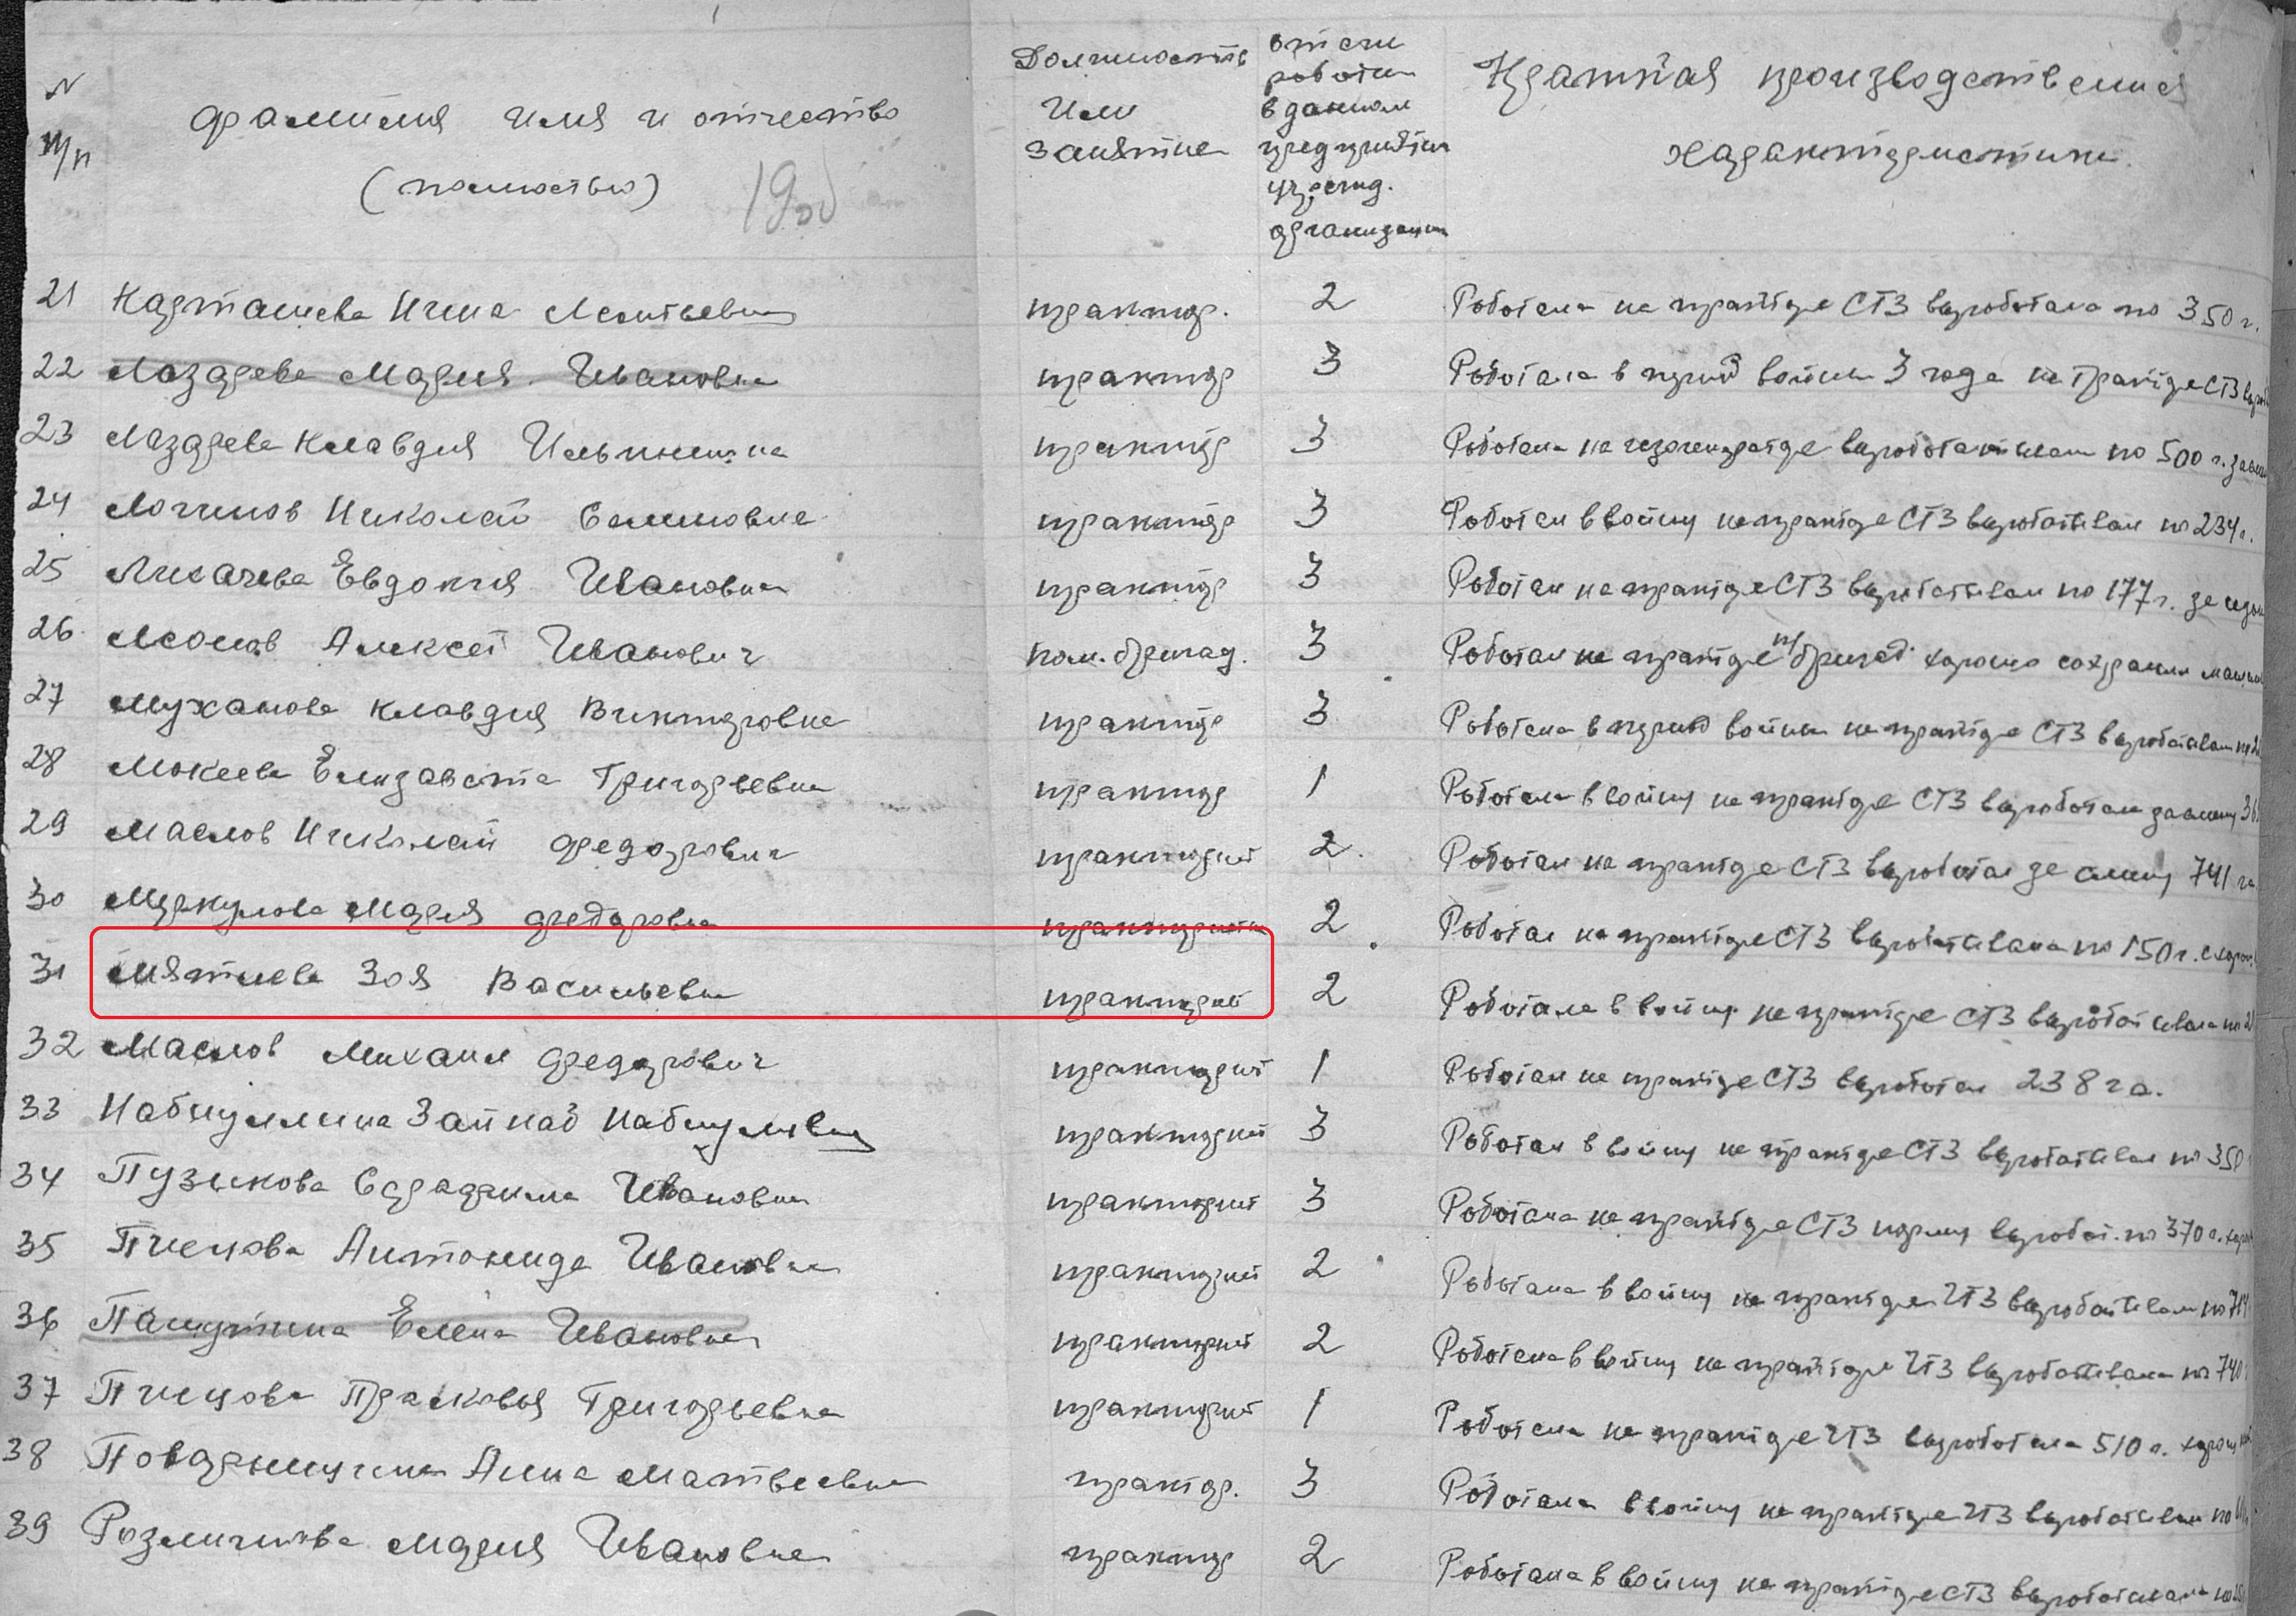 N п/п фамилия имя и отчество (полностью) Должность или занятие в данном предприятии учрежд. организации Краткая производственная характеристика.
21 Карташева Нина Леонтьевна трактор. 2 Работала на тракторе СТЗ выработала по 350 г.
22 Лазарева Мария Ивановна трактор 3 Работала в период войны 3 года на тракторе СТЗ
23 Лазарева Клавдия Ильинична трактор 3 Работала на газогенераторе вырабатывала по 500 г.
24 Логинов Николай трактор 3 Работал в войну на тракторе СТЗ вырабатывал по 234 г.
25 Лихачева Евдокия Ивановна трактор 3 Работал на тракторе СТЗ вырабатывал по 177 г. за сезон
26 Алексей Иванович пом. бригад. 3 Работал на тракторе п/бригад. хорошо сохранял
27 Муханова Клавдия Викторовна трактор 3 Работала в период войны на тракторе СТЗ вырабатывал
28 Мокеева Елизавета Григорьевна трактор 1 Работала в войну на тракторе СТЗ выработал
29 Маслов Николай Федорович тракторист 2 Работал на тракторе СТЗ выработал за смену 741 га
30 Меркулова Мария Федоровна тракторист 2 Работал на тракторе СТЗ вырабатывала по 150 г.
31 Мятлева Зоя Васильевна тракторист 2 Работала в войну на тракторе СТЗ вырабатывала по
32 Маслов Михаил Федорович тракторист 1 Работал на тракторе СТЗ выработал 238 га.
33 Набиуллина Зайнаб тракторист 3 Работал в войну на тракторе СТЗ вырабатывал по 350
34 Пузикова Ивановна тракторист 3 Работала на тракторе СТЗ норму выработ. по 370 г.
35 Антонида Ивановна тракторист 2 Работала в войну на тракторе ЧТЗ вырабатывал по
36 Панютина Елена Ивановна тракторист 2 Работала в войну на тракторе ЧТЗ вырабатывала по 740
37 Прасковья Григорьевна тракторист 1 Работала на тракторе ЧТЗ выработала 510 г.
38 Анна Матвеевна трактор. 3 Работала в войну на тракторе ЧТЗ вырабатывал по
39 Мария Ивановна трактор 2 Работала в войну на тракторе СТЗ вырабатывала по